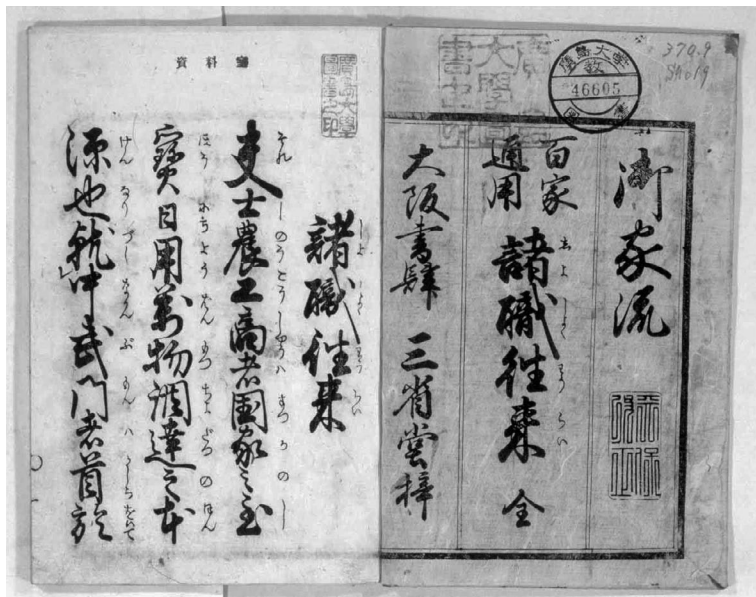 374.9
Sho 19
広島大学
教
46605
図書
御家流
百家
通用
諸職往来 全
しよしよくわうらい
大阪書肆 三省堂梓
資料室
廣島大學
圖書之印
諸職往来
しよしよくわうらい
夫士農工商者国家之至
それしのうこうしやうハこつかのし
寳日用萬物調達之本
ほうにちようばんもつちようだつのほん
源也就中武門者首於
げんなりなかんづくぶもんハかしらをいて